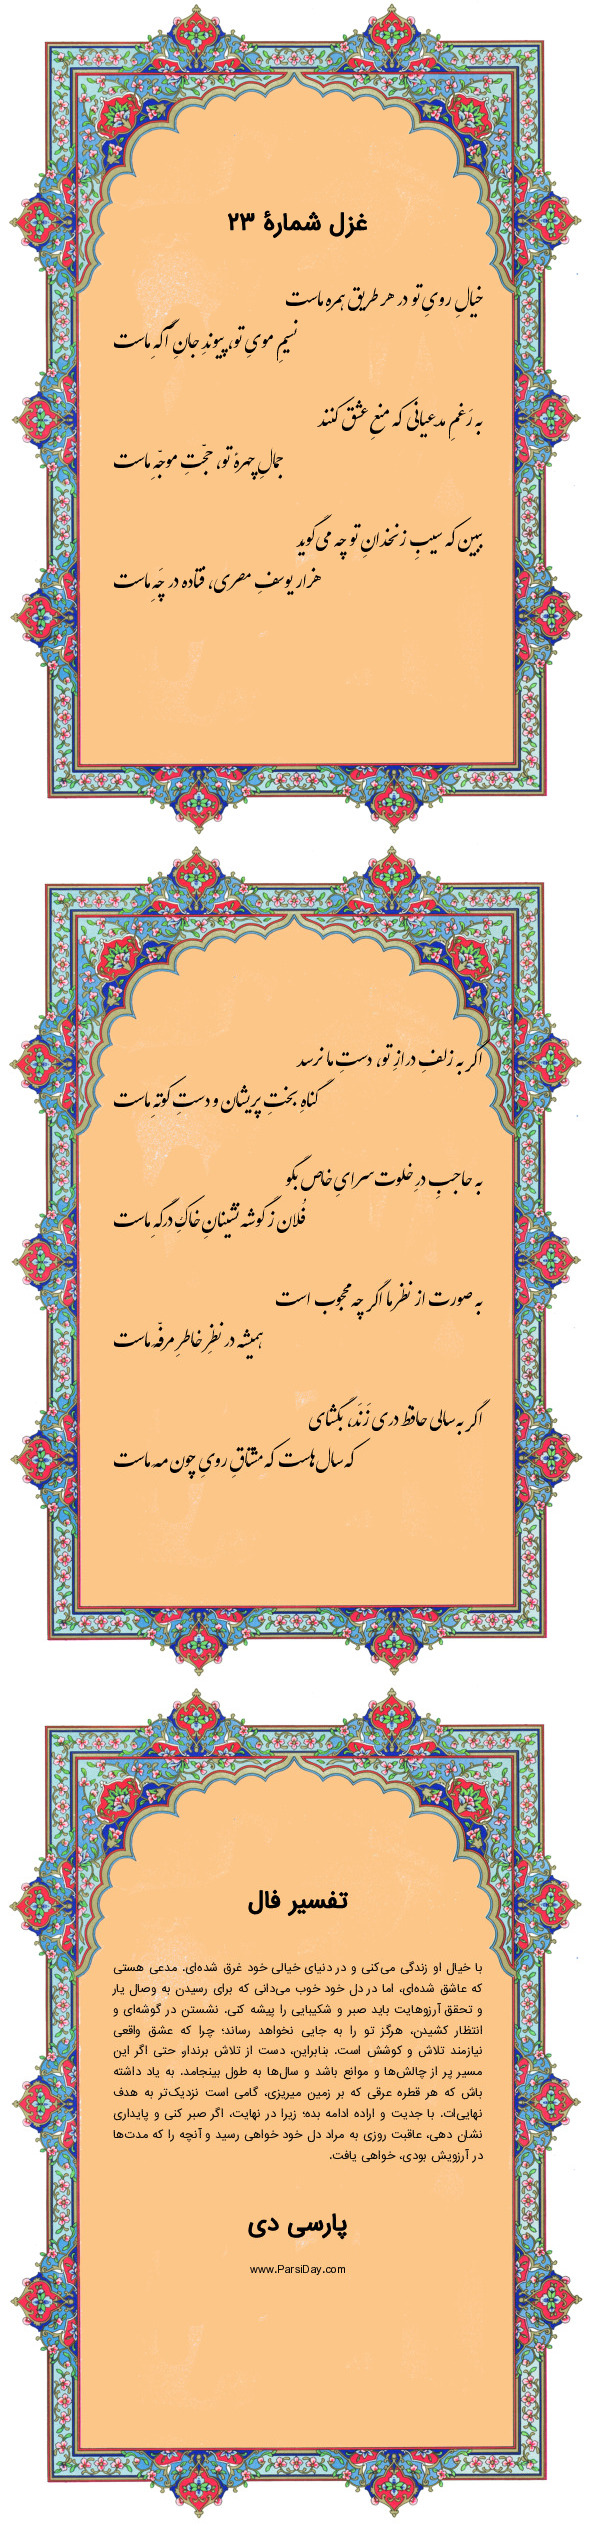 غزل شمارهٔ ۲۳
خیالِ رویِ تو در هر طریق همرهِ ماست
نسیمِ مویِ تو، پیوندِ جانِ آگهِ ماست
به رَغمِ مدعیانی که منعِ عشق کنند
جمالِ چهرهٔ تو، حجّتِ موجّهِ ماست
ببین که سیبِ زنخدانِ تو چه می‌گوید
هزار یوسفِ مصری، فتاده در چَهِ ماست
اگر به زلفِ درازِ تو، دستِ ما نرسد
گناهِ بختِ پریشان و دستِ کوتهِ ماست
به حاجبِ درِ خلوت سرایِ خاص بگو
فُلان ز گوشه نشینانِ خاکِ درگهِ ماست
به صورت از نظر ما اگر چه محجوب است
همیشه در نظرِ خاطرِ مرفّهِ ماست
اگر به سالی حافظ دری زَنَد، بگشای
که سال‌هاست که مشتاقِ رویِ چون مهِ ماست
تفسیر فال
با خیال او زندگی می‌کنی و در دنیای خیالی خود غرق شده‌ای. مدعی هستی
که عاشق شده‌ای، اما در دل خود خوب می‌دانی که برای رسیدن به وصال یار
و تحقق آرزوهایت باید صبر و شکیبایی را پیشه کنی. نشستن در گوشه‌ای و
انتظار کشیدن، هرگز تو را به جایی نخواهد رساند؛ چرا که عشق واقعی
نیازمند تلاش و کوشش است. بنابراین، دست از تلاش برندار، حتی اگر این
مسیر پر از چالش‌ها و موانع باشد و سال‌ها به طول بینجامد. به یاد داشته
باش که هر قطره عرقی که بر زمین میریزی، گامی است نزدیک‌تر به هدف
نهایی‌ات. با جدیت و اراده ادامه بده؛ زیرا در نهایت، اگر صبر کنی و پایداری
نشان دهی، عاقبت روزی به مراد دل خود خواهی رسید و آنچه را که مدت‌ها
در آرزویش بودی، خواهی یافت.
پارسی دی
www.ParsiDay.com